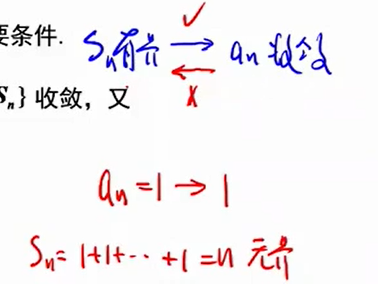 要条件.
Sₙ有界 → aₙ收敛
✓
← ×
Sₙ} 收敛，又
aₙ = 1 → 1
Sₙ = 1+1+⋯+1 = n 无界